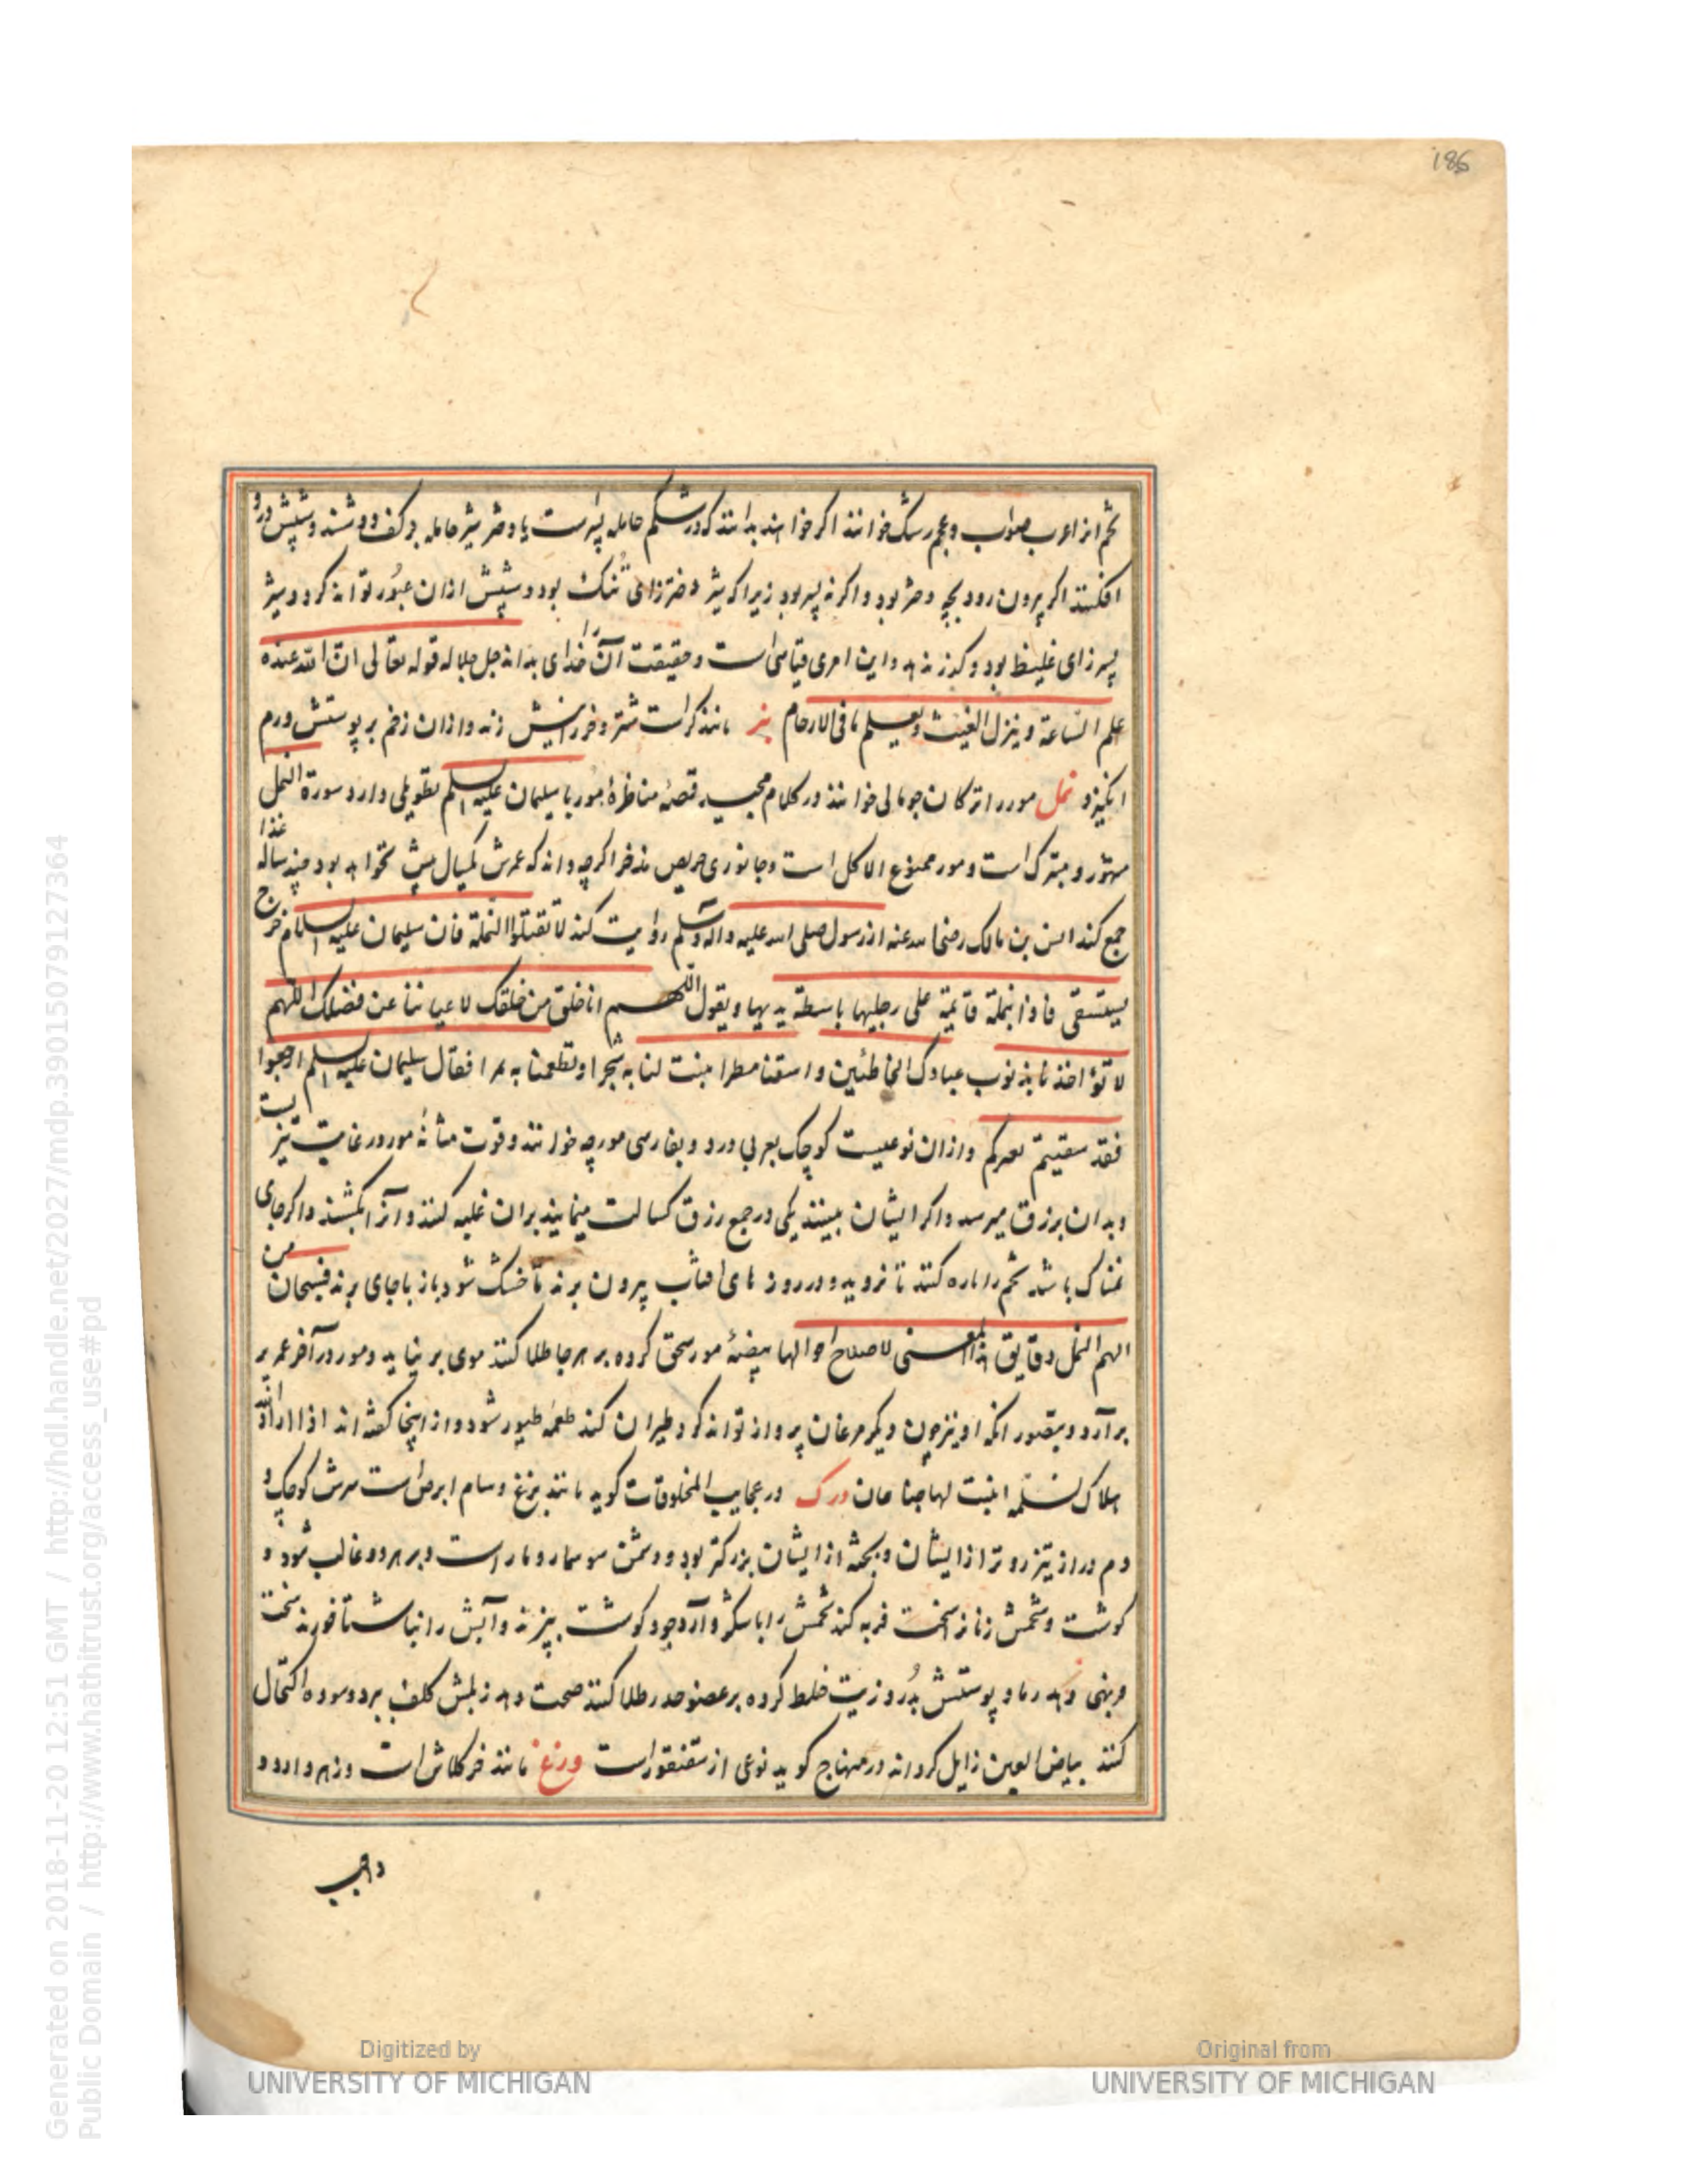 186
تخم انرا عرب صواب و عجم رشک خوانند اگر خواهند بدانند که در شکم حامله پسر است یا دختر شیر حامله بر کف دوشند و شپش درو
افکنند اگر بیرون رود بچه دختر بود و اگر نه پسر بود زیرا که شیر دختر زای تنک بود و شپش ازان عبور تواند کرد و شیر
پسر زای غلیظ بود و گذر ندهد و این امری قیاسی است و حقیقت آن را خدای بداند جل جلاله قوله تعالی ان الله عنده
علم الساعة و ینزل الغیث و یعلم ما فی الارحام نبر مانند کراست شتر و خر را نیش زند و ازان زخم بر پوستش ورم
انگیزد نمل مور را ترکان جومالی خوانند در کلام مجید قصهٔ مناظرهٔ مور با سلیمان علیه السلم تطویلی دارد سورة النمل
مشهور و متبرک است و مور ممنوع الاکل است و جانوری حریص مدخر اگرچه داند که عمرش یکسال بیش نخواهد بود چند ساله غذا
جمع کند انس بن مالک رضی الله عنه از رسول صلی الله علیه واله وسلم روایت کند لا تقتلوا النملة فان سلیمان علیه السلام خرج
یستسقی فاذا بنملة قائمة علی رجلیها باسطة یدیها و یقول اللهم انا خلق من خلقک لا غیاثنا عن فضلک اللهم
لا تؤاخذنا بذنوب عبادک الخاطئین و اسقنا مطرا ینبت لنا به شجرا و تطعمنا به ثمرا فقال سلیمان علیه السلم ارجعوا
فقد سقیتم بغیرکم و ازان نوعیست کوچک بعربی ذره و بفارسی مورچه خوانند و قوت شامهٔ مور در غایت تیزیست
و بدان برزق میرسد و اگر ایشان ببینند یکی در جمع رزق کسالت مینماید بران غلبه کنند و آنرا بکشند و اگر جای
نمناک باشد تخم را پاره کنند تا نروید و در روز های افتاب بیرون برند تا خشک شود باز باجای برند فسبحان من
الهم النمل دقایق هذا المعنی لاصلاح احوالها بیضهٔ مور سحق کرده بر هر جا طلا کنند موی بر نیاید و مور در آخر عمر پر
برآرد و بتصور انکه او نیز چون دیگر مرغان پرواز تواند کرد طیران کند طعمهٔ طیور شود و از اینجا گفته اند اذا اراد الله
اهلاک نملة انبتت لها جناحان ورک در عجایب المخلوقات گوید مانند بزغ و سام ابرص است سرش کوچک و
دم دراز تیز رو تر از ایشان و بجثه از ایشان بزرگتر بود و دشمن سوسمار و مار است و بر هر دو غالب شود و
گوشت و شحمش زنانرا سخت فربه کند شحمش را با شکر و آرد جو و گوشت بپزند و آبش را ناشتا خورند سخت
فربهی دهد رماد پوستش بدرد زیت خلط کرده بر عضو خدر طلا کنند صحت دهد زبلش کلف ببرد و سوده اکتحال
کنند بیاض العین زایل گرداند در منهاج گوید نوعی از سقنقور است وزغ مانند خرکلاش است و زهر دارد و
Generated on 2018-11-20 12:51 GMT / http://hdl.handle.net/2027/mdp.39015079127364
Public Domain / http://www.hathitrust.org/access_use#pd
Digitized by
UNIVERSITY OF MICHIGAN
Original from
UNIVERSITY OF MICHIGAN